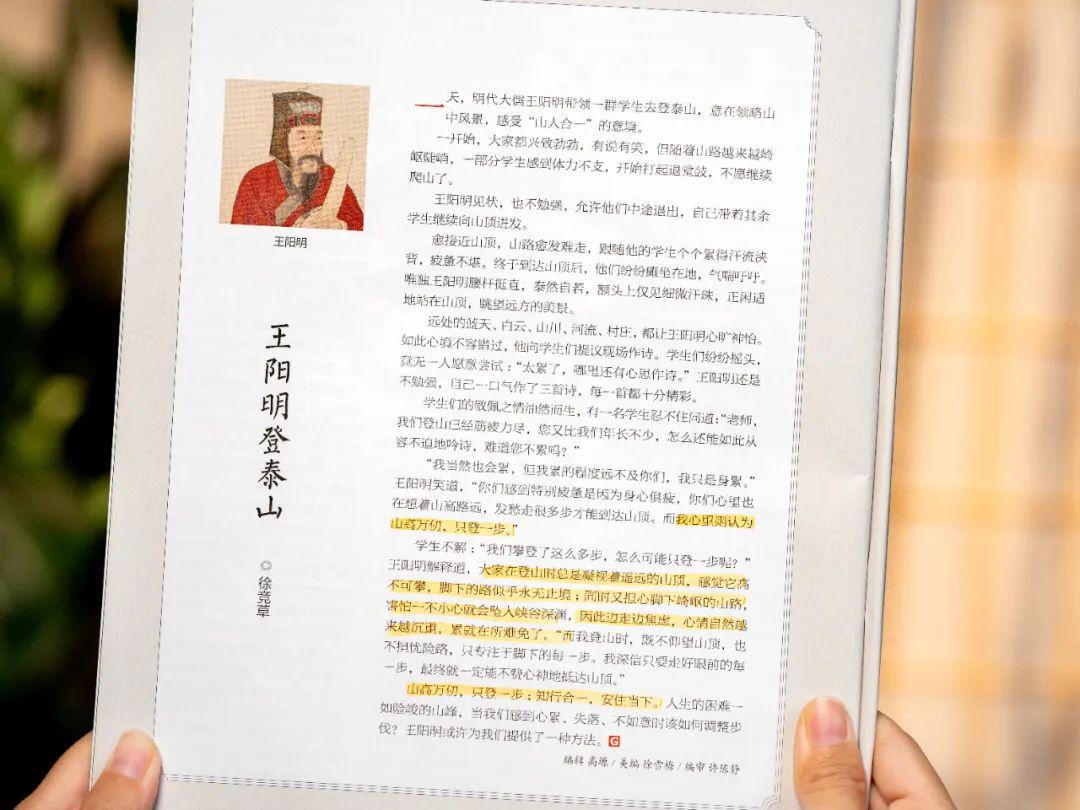 王阳明
王阳明登泰山
◎徐竞草
一天，明代大儒王阳明带领一群学生去登泰山，意在领略山
中风景，感受“山人合一”的意境。
一开始，大家都兴致勃勃，有说有笑，但随着山路越来越崎
岖陡峭，一部分学生感到体力不支，开始打起退堂鼓，不愿继续
爬山了。
王阳明见状，也不勉强，允许他们中途退出，自己带着其余
学生继续向山顶进发。
愈接近山顶，山路愈发难走，跟随他的学生个个累得汗流浃
背，疲惫不堪。终于到达山顶后，他们纷纷瘫坐在地，气喘吁吁。
唯独王阳明腰杆挺直，泰然自若，额头上仅见细微汗珠，正闲适
地站在山顶，眺望远方的美景。
远处的蓝天、白云、山川、河流、村庄，都让王阳明心旷神怡。
如此心境不容错过，他向学生们提议现场作诗。学生们纷纷摇头，
竟无一人愿意尝试：“太累了，哪里还有心思作诗。”王阳明还是
不勉强，自己一口气作了三首诗，每一首都十分精彩。
学生们的敬佩之情油然而生，有一名学生忍不住问道：“老师，
我们登山已经筋疲力尽，您又比我们年长不少，怎么还能如此从
容不迫地吟诗，难道您不累吗？”
“我当然也会累，但我累的程度远不及你们，我只是身累。”
王阳明笑道，“你们感到特别疲惫是因为身心俱疲，你们心里也
在想着山高路远，发愁走很多步才能到达山顶。而我心里则认为
山高万仞，只登一步。”
学生不解：“我们攀登了这么多步，怎么可能只登一步呢？”
王阳明解释道，大家在登山时总是凝视着遥远的山顶，感觉它高
不可攀，脚下的路似乎永无止境；同时又担心脚下崎岖的山路，
害怕一不小心就会坠入峡谷深渊，因此边走边焦虑，心情自然越
来越沉重，累就在所难免了。“而我登山时，既不仰望山顶，也
不担忧险路，只专注于脚下的每一步。我深信只要走好眼前的每
一步，最终就一定能不费心神地抵达山顶。”
山高万仞，只登一步；知行合一，安住当下。人生的困难一
如险峻的山峰，当我们感到心累、失落、不如意时该如何调整步
伐？王阳明或许为我们提供了一种方法。G
编辑 高塬 / 美编 徐雪梅 / 编审 许陈静